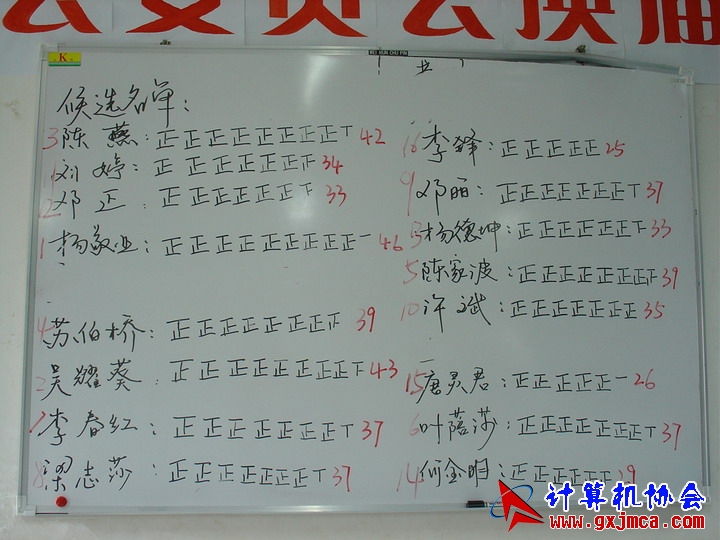 公委员会换届
K
候选名单：
3 陈燕：正正正正正正正正丅 42
刘婷：正正正正正正 34
邓正：正正正正正正 33
1 杨敬业：正正正正正正正正正一 46
4 苏伯桥：正正正正正正正 39
2 吴耀葵：正正正正正正正正 43
7 李春红：正正正正正正正丅 37
8 梁志莎：正正正正正正正丅 37
16 李锋：正正正正正 25
9 邓丽：正正正正正正正丅 37
13 杨德坤：正正正正正正 33
5 陈家波：正正正正正正正 39
10 许斌：正正正正正正正 35
15 唐灵君：正正正正正一 26
6 叶蓓莎：正正正正正正正丅 37
14 何金明：正正正正正 29
计算机协会
www.gxjmca.com